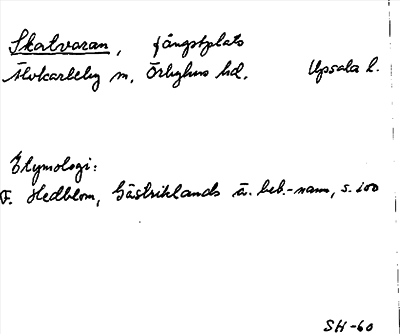 Skatvaran, fångstplats
Älvkarleby sn, Örbyhus hd. Uppsala l.
Etymologi:
F. Hedblom, Gästriklands ä. beb.-namn, s. 100
SH-60